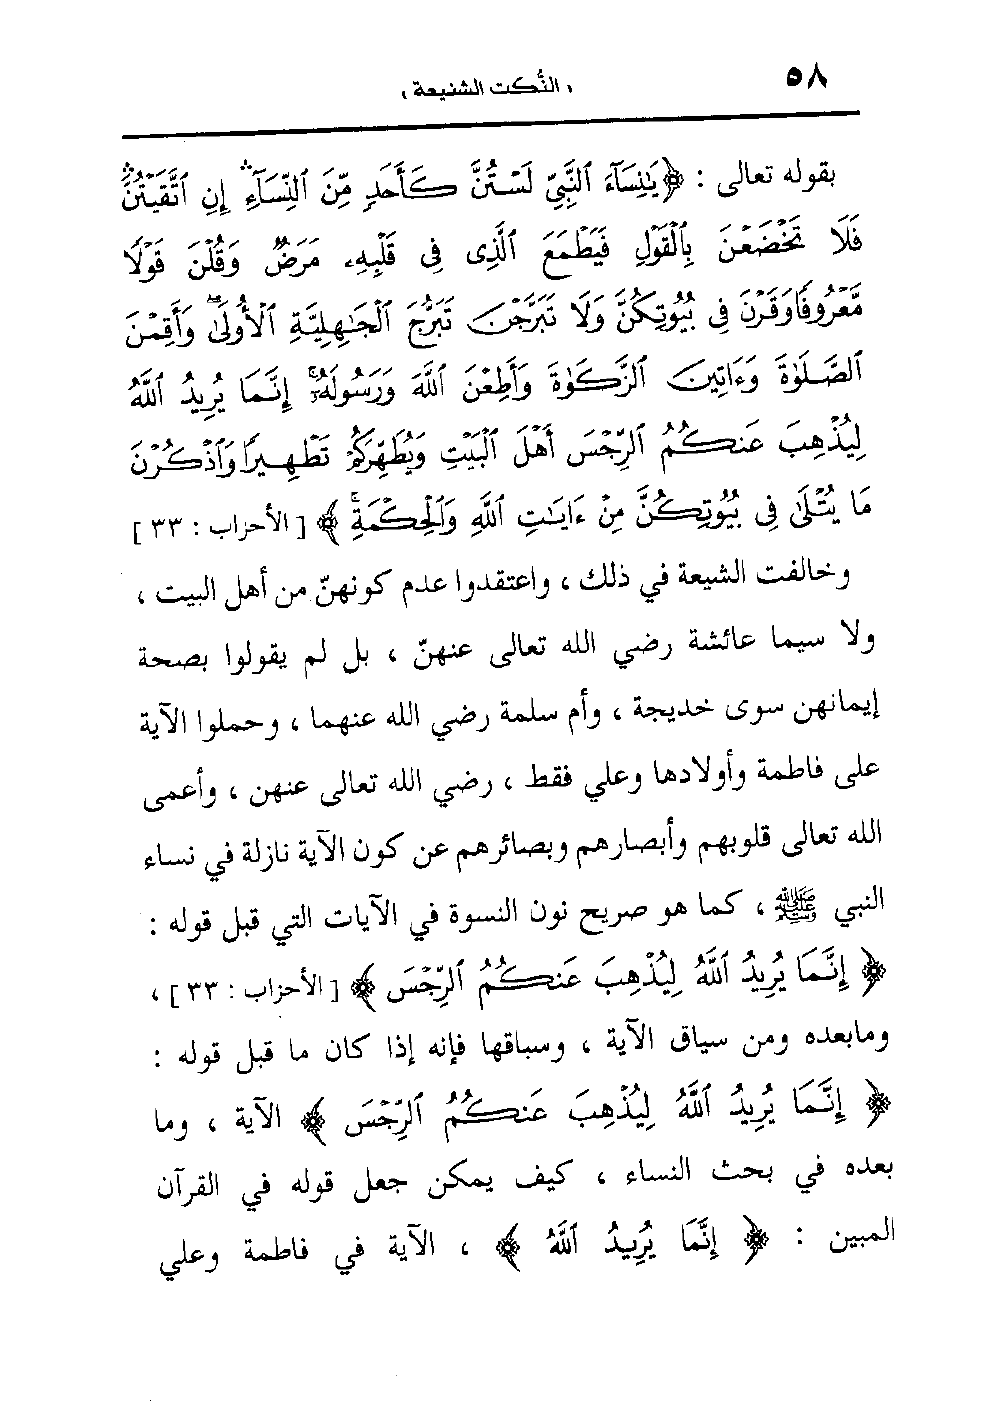 ٥٨
« النُّكت الشنيعة »
بقوله تعالى : ﴿ يَٰنِسَآءَ ٱلنَّبِيِّ لَسۡتُنَّ كَأَحَدٍ مِّنَ ٱلنِّسَآءِ إِنِ ٱتَّقَيۡتُنَّۚ
فَلَا تَخۡضَعۡنَ بِٱلۡقَوۡلِ فَيَطۡمَعَ ٱلَّذِى فِى قَلۡبِهِۦ مَرَضٌ وَقُلۡنَ قَوۡلًا
مَّعۡرُوفًا وَقَرۡنَ فِى بُيُوتِكُنَّ وَلَا تَبَرَّجۡنَ تَبَرُّجَ ٱلۡجَٰهِلِيَّةِ ٱلۡأُولَىٰۖ وَأَقِمۡنَ
ٱلصَّلَوٰةَ وَءَاتِينَ ٱلزَّكَوٰةَ وَأَطِعۡنَ ٱللَّهَ وَرَسُولَهُۥٓۚ إِنَّمَا يُرِيدُ ٱللَّهُ
لِيُذۡهِبَ عَنكُمُ ٱلرِّجۡسَ أَهۡلَ ٱلۡبَيۡتِ وَيُطَهِّرَكُمۡ تَطۡهِيرًا وَٱذۡكُرۡنَ
مَا يُتۡلَىٰ فِى بُيُوتِكُنَّ مِنۡ ءَايَٰتِ ٱللَّهِ وَٱلۡحِكۡمَةِۚ ﴾ [ الأحزاب : ٣٣ ]
وخالفت الشيعة في ذلك ، واعتقدوا عدم كونهنّ من أهل البيت ،
ولا سيما عائشة رضي الله تعالى عنهنّ ، بل لم يقولوا بصحة
إيمانهن سوى خديجة ، وأم سلمة رضي الله عنهما ، وحملوا الآية
على فاطمة وأولادها وعلي فقط ، رضي الله تعالى عنهن ، وأعمى
الله تعالى قلوبهم وأبصارهم وبصائرهم عن كون الآية نازلة في نساء
النبي ﷺ ، كما هو صريح نون النسوة في الآيات التي قبل قوله :
﴿ إِنَّمَا يُرِيدُ ٱللَّهُ لِيُذۡهِبَ عَنكُمُ ٱلرِّجۡسَ ﴾ [ الأحزاب : ٣٣ ] ،
ومابعده ومن سياق الآية ، وسباقها فإنه إذا كان ما قبل قوله :
﴿ إِنَّمَا يُرِيدُ ٱللَّهُ لِيُذۡهِبَ عَنكُمُ ٱلرِّجۡسَ ﴾ الآية ، وما
بعده في بحث النساء ، كيف يمكن جعل قوله في القرآن
المبين : ﴿ إِنَّمَا يُرِيدُ ٱللَّهُ ﴾ ، الآية في فاطمة وعلي